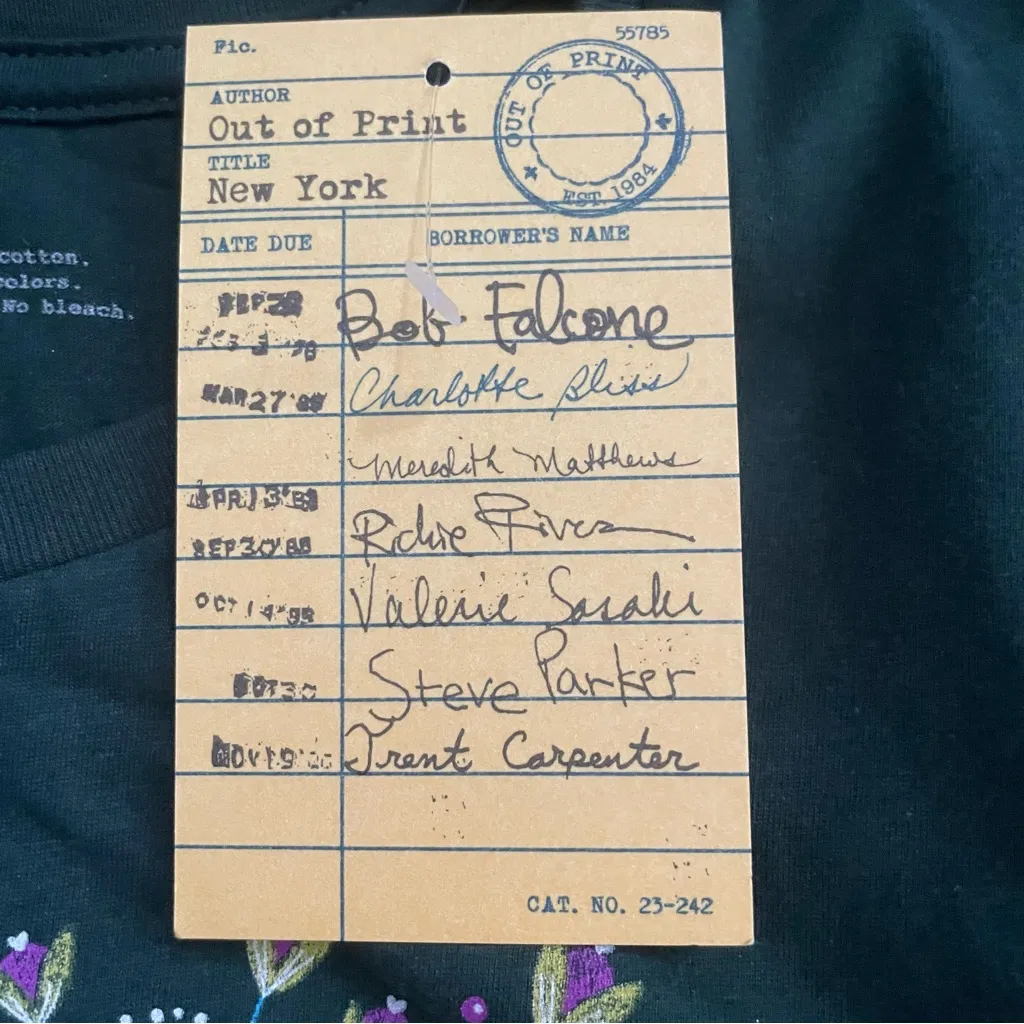 Fic.
55785
OUT OF PRINT
EST. 1984
AUTHOR
Out of Print
TITLE
New York
DATE DUE
BORROWER'S NAME
cotton.
colors.
No bleach.
Bob Falcone
MAR 27
Charlotte Bliss
Meredith Matthews
APR 13
Richie Rivera
SEP 30 '88
Valerie Sasaki
OCT 14
Steve Parker
30
Trent Carpenter
NOV 19
CAT. NO. 23-242